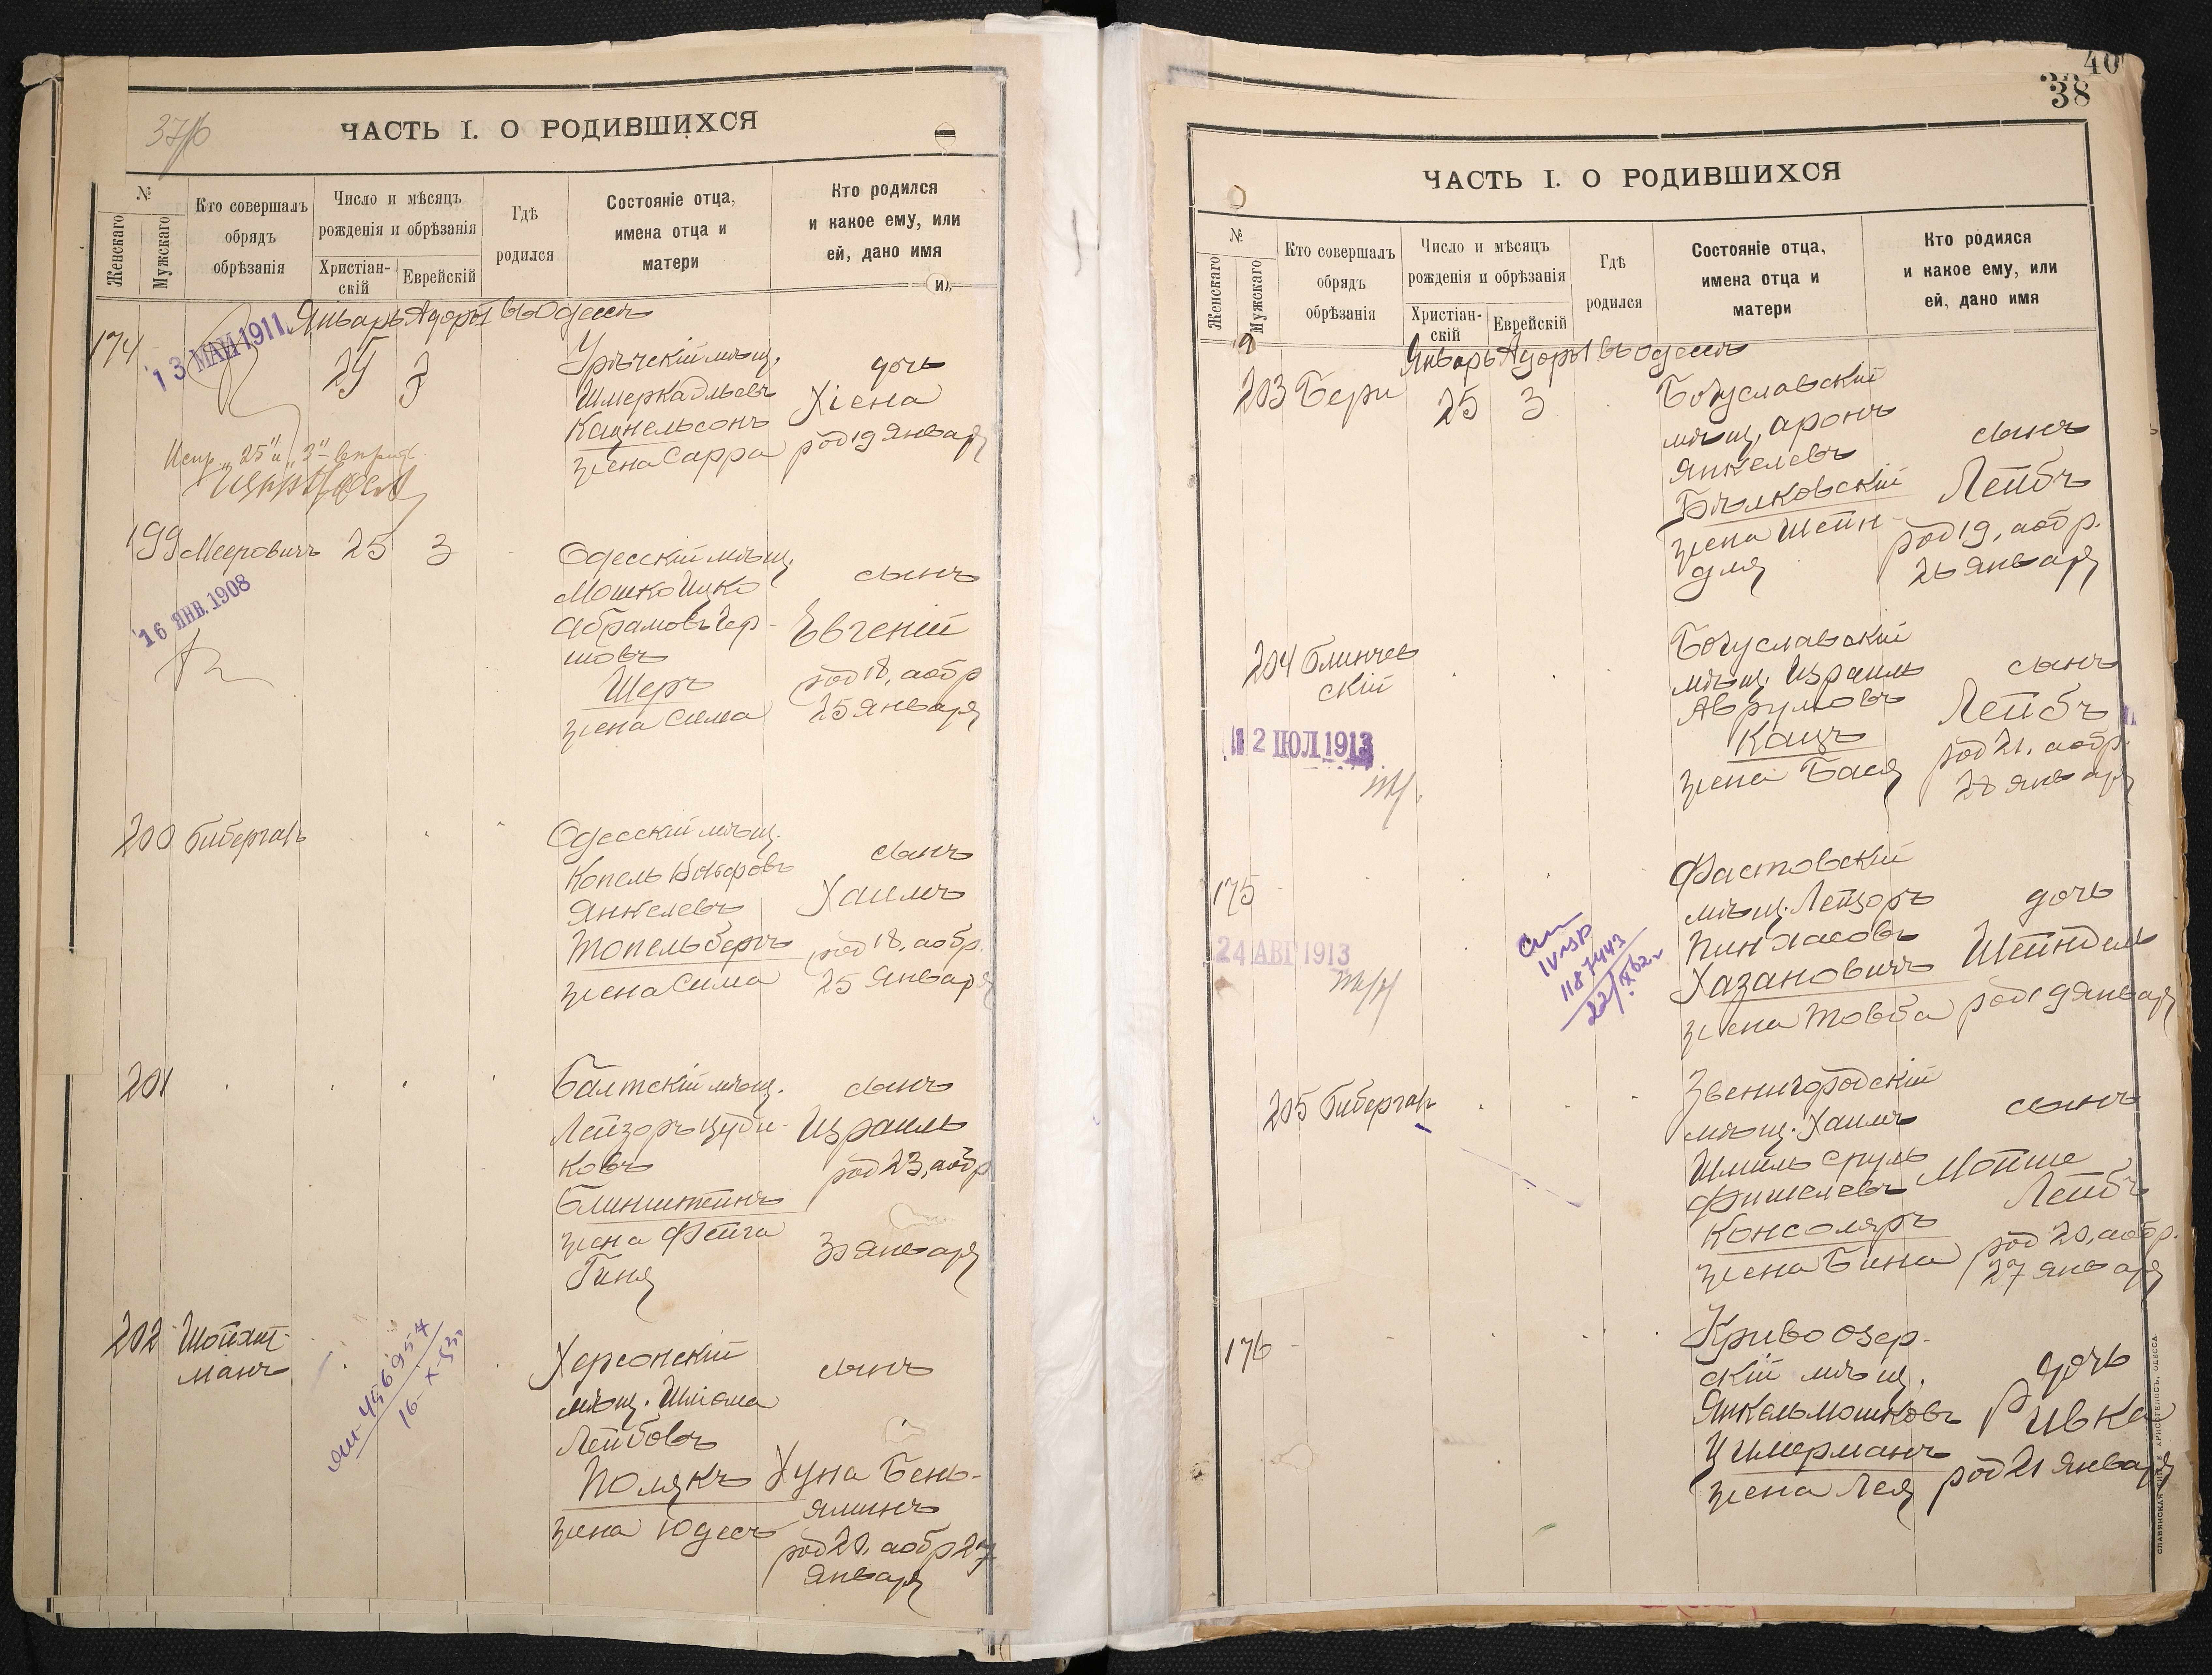 37/б
ЧАСТЬ I. О РОДИВШИХСЯ
№
Женскаго
Мужскаго
Кто совершалъ
обрядъ
обрѣзанія
Число и мѣсяцъ
рожденія и обрѣзанія
Христіан-
скій
Еврейскій
Гдѣ
родился
Состояніе отца,
имена отца и
матери
Кто родился
и какое ему, или
ей, дано имя
Январь Адаръ I въ Одессѣ
174
13 МАЙ 1911
25
3
мѣщ.
Шмерка
Кацнельсонъ
жена Сарра
дочь
Хіена
род 19 Января
Испр. „25" и „3"
199
Мееровичъ
25
3
16 ЯНВ. 1908
Одесскій мѣщ.
Мошко Ицко
Абрамовъ Гер-
шовъ
Шеръ
жена Сима
сынъ
Евгеній
род 18, а обр
25 января
200
Биберганъ
Одесскій мѣщ.
Копель
Янкелевъ
Топельбергъ
жена Сима
сынъ
Хаимъ
род 18, а обр.
25 Января
201
Балтскій мѣщ.
Лейзоръ Цуди-
ковъ
Блинштейнъ
жена Фейга
Гиня
сынъ
Израиль
род 23, а обр
30 января
202
Шойхет-
манъ
456954
16-X-53г.
Херсонскій
мѣщ. Шліома
Лейбовъ
Полякъ
жена Юдесъ
сынъ
Хуна Бень-
яминъ
род 20, а обр 27
Января
40
38
ЧАСТЬ I. О РОДИВШИХСЯ
№
Женскаго
Мужскаго
Кто совершалъ
обрядъ
обрѣзанія
Число и мѣсяцъ
рожденія и обрѣзанія
Христіан-
скій
Еврейскій
Гдѣ
родился
Состояніе отца,
имена отца и
матери
Кто родился
и какое ему, или
ей, дано имя
Январь Адаръ I въ Одессѣ
203
Бери
25
3
Богуславскій
мѣщ. Аронъ
Янкелевъ
Бѣлковскій
жена Шейн-
для
сынъ
Лейбъ
род 19, а обр.
26 января
204
Блинчев
скій
12 ІЮЛ 1913
Богуславскій
мѣщ. Израиль
Аврумовъ
Кацъ
жена Бася
сынъ
Лейбъ
род 21, а обр.
28 января
175
24 АВГ 1913
187443
22/XI 62г.
Фастовскій
мѣщ. Лейзоръ
Пинхасовъ
Хазановичъ
жена Товба
дочь
Шейндель
род 19 января
205
Биберганъ
Звенигородскій
мѣщ. Хаимъ
Шмиль Сруль
Фишелевъ
Консоляръ
жена Бина
сынъ
Мойше
Лейбъ
род 20, а обр.
27 января
176
Кривоозер-
скій мѣщ.
Янкель Мошковъ
Цимерманъ
жена Лея
дочь
Ривка
род 21 Января